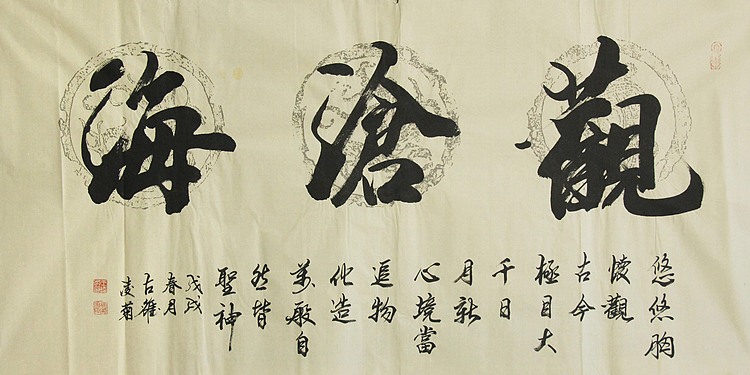 觀滄海
悠悠胸
懷觀
古今
極目大
千日
月新
心境當
追物
化造
萬般自
然皆
聖神
戊戌
春月
古雒
凌菊